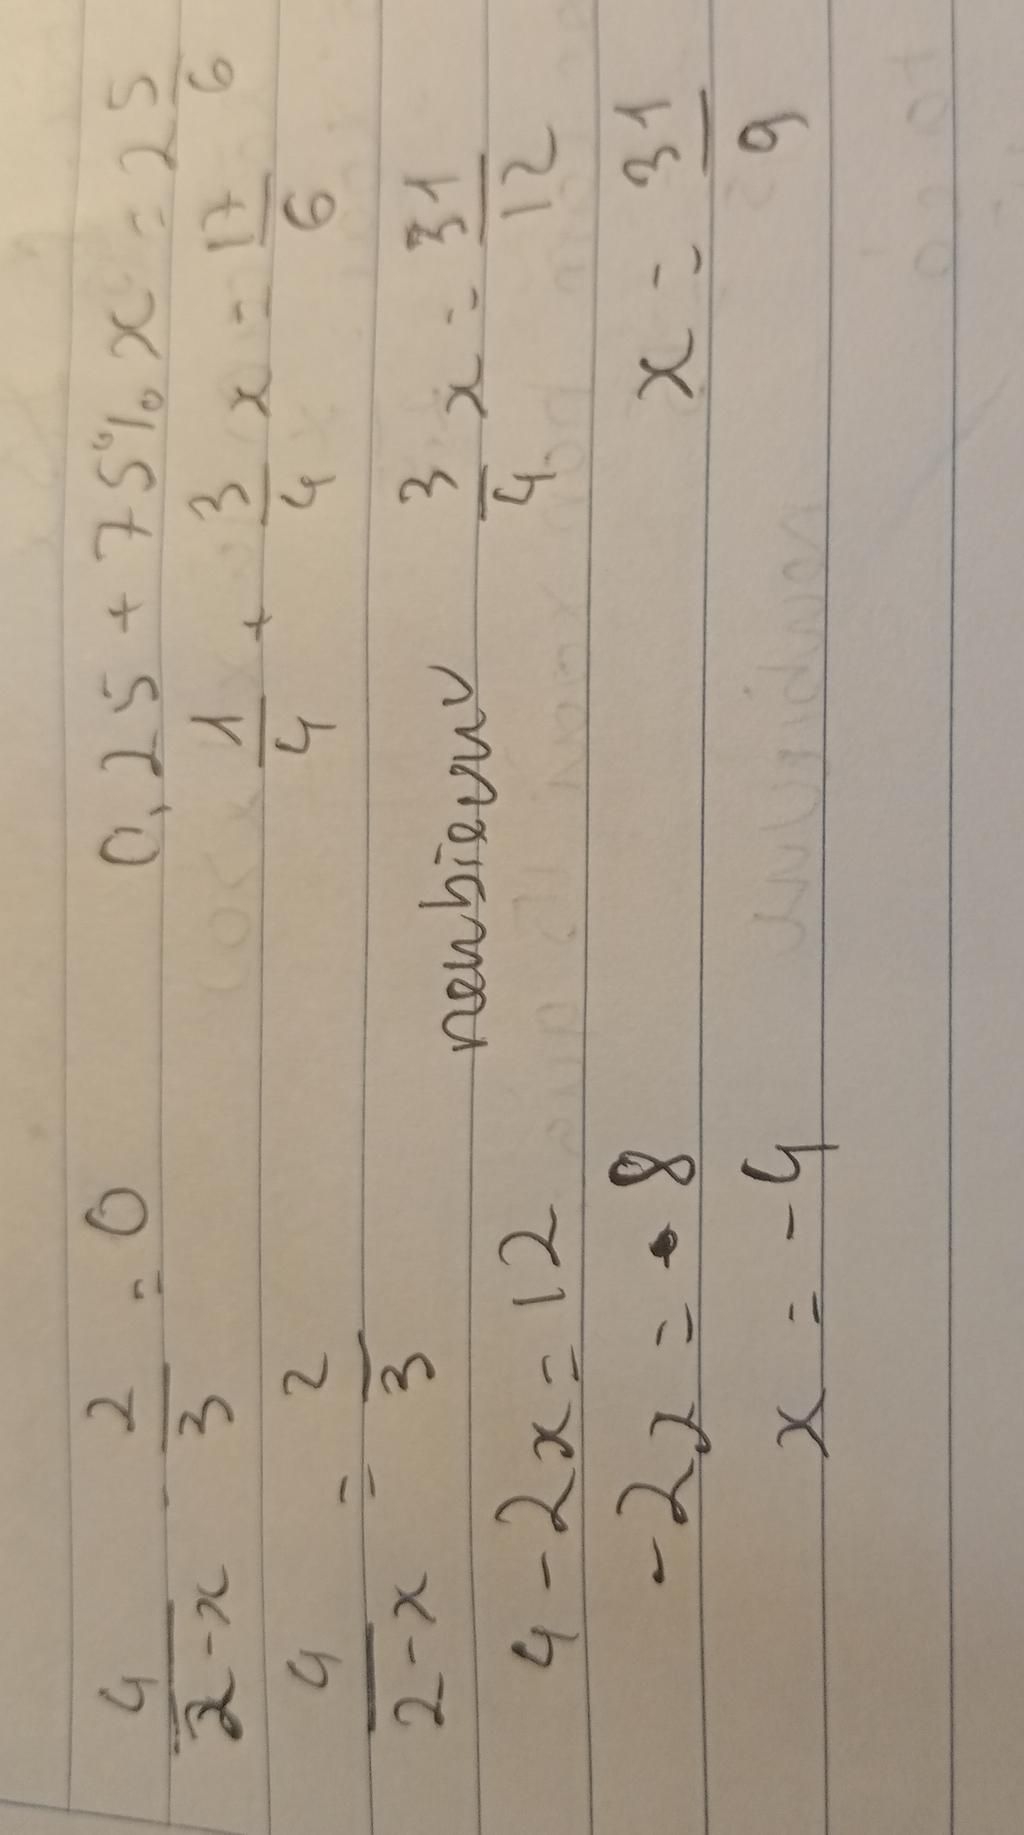 4/(2-x) - 2/3 = 0
4/(2-x) = 2/3
4 - 2x = 12
-2x = 8
x = -4
0,25 + 75% x = 2 5/6
1/4 + 3/4 x = 17/6
3/4 x = 31/12
x = 31/9